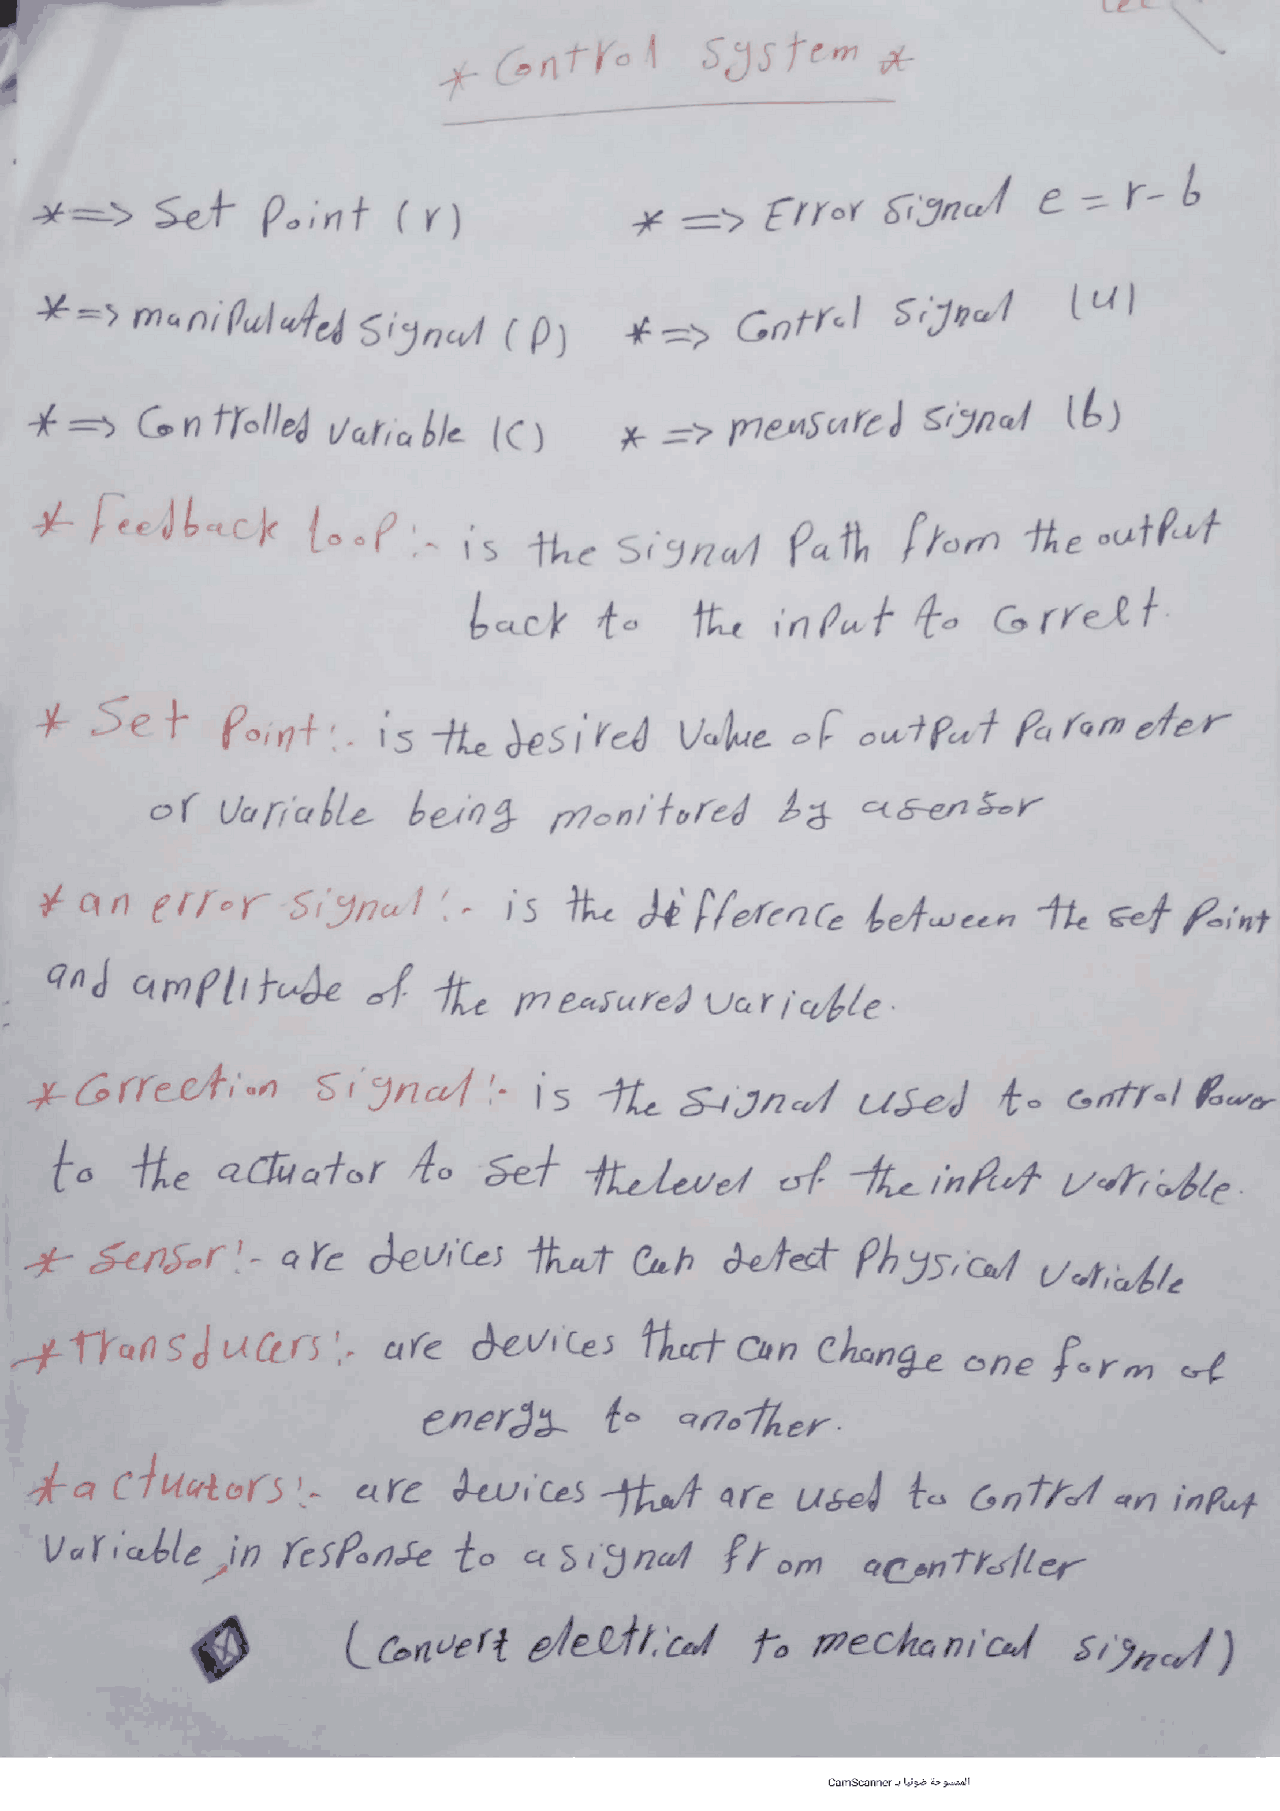 * Control System *
*=> Set Point (r)
* => Error Signal e = r - b
*=> manipulated Signal (P)
*=> Control Signal (u)
*=> Controlled variable (C)
* => measured signal (b)
* Feedback loop:- is the signal Path from the output
back to the input to Correct.
* Set Point:- is the desired Value of output Parameter
or Variable being monitored by a sensor
* an error signal:- is the difference between the set Point
and amplitude of the measured variable.
* Correction Signal:- is the signal used to control Power
to the actuator to set the level of the input variable.
* Sensor:- are devices that can detect Physical variable
* transducers:- are devices that can change one form of
energy to another.
* actuators:- are devices that are used to control an input
Variable, in response to a signal from a controller
(convert electrical to mechanical signal)
الممسوحة ضوئيا بـ CamScanner